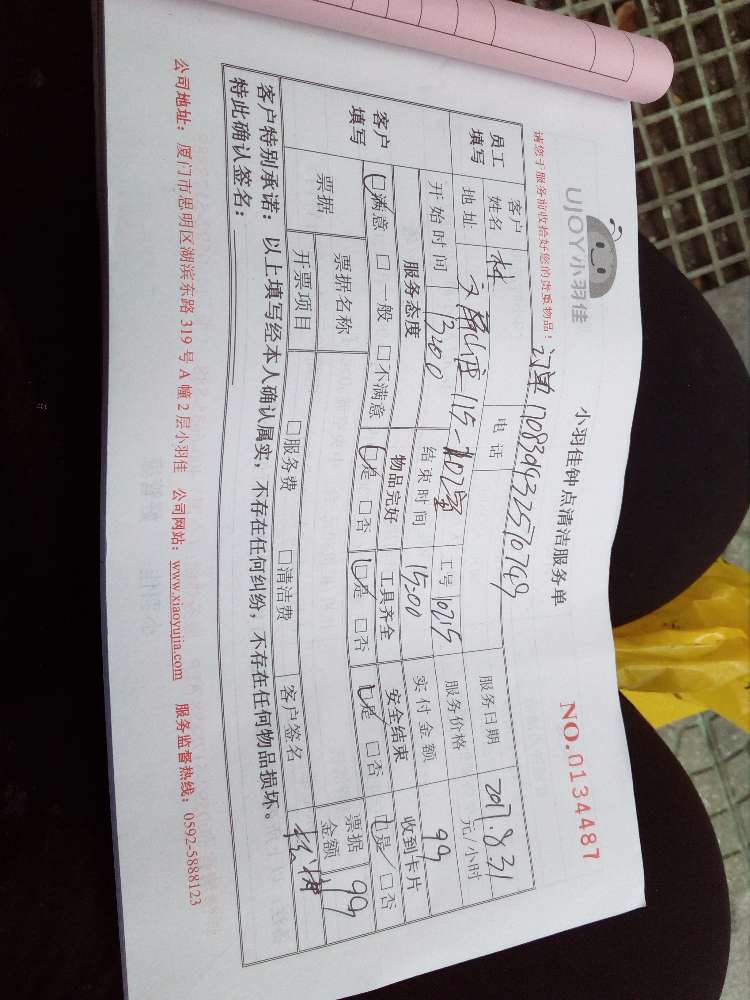 UJOY小羽佳
小羽佳钟点清洁服务单
NO.0134487
请您于服务前收拾好您的贵重物品！
订单 170830932570749
员工填写
客户姓名 林 电话 服务日期 2017.8.31
地址 115-102室 工号 10215 服务价格 元/小时
开始时间 13:00 结束时间 15:00 实付金额 99
客户填写
服务态度 物品完好 工具齐全 安全结束 收到卡片
□满意 □一般 □不满意 □是 □否 □是 □否 □是 □否 □是 □否
票据 票据名称 票据金额 99
开票项目 □服务费 □清洁费 客户签名
客户特别承诺：以上填写经本人确认属实，不存在任何纠纷，不存在任何物品损坏。
特此确认签名：
公司地址：厦门市思明区湖滨东路 319 号 A 幢 2 层小羽佳 公司网站：www.xiaoyujia.com 服务监督热线：0592-5888123